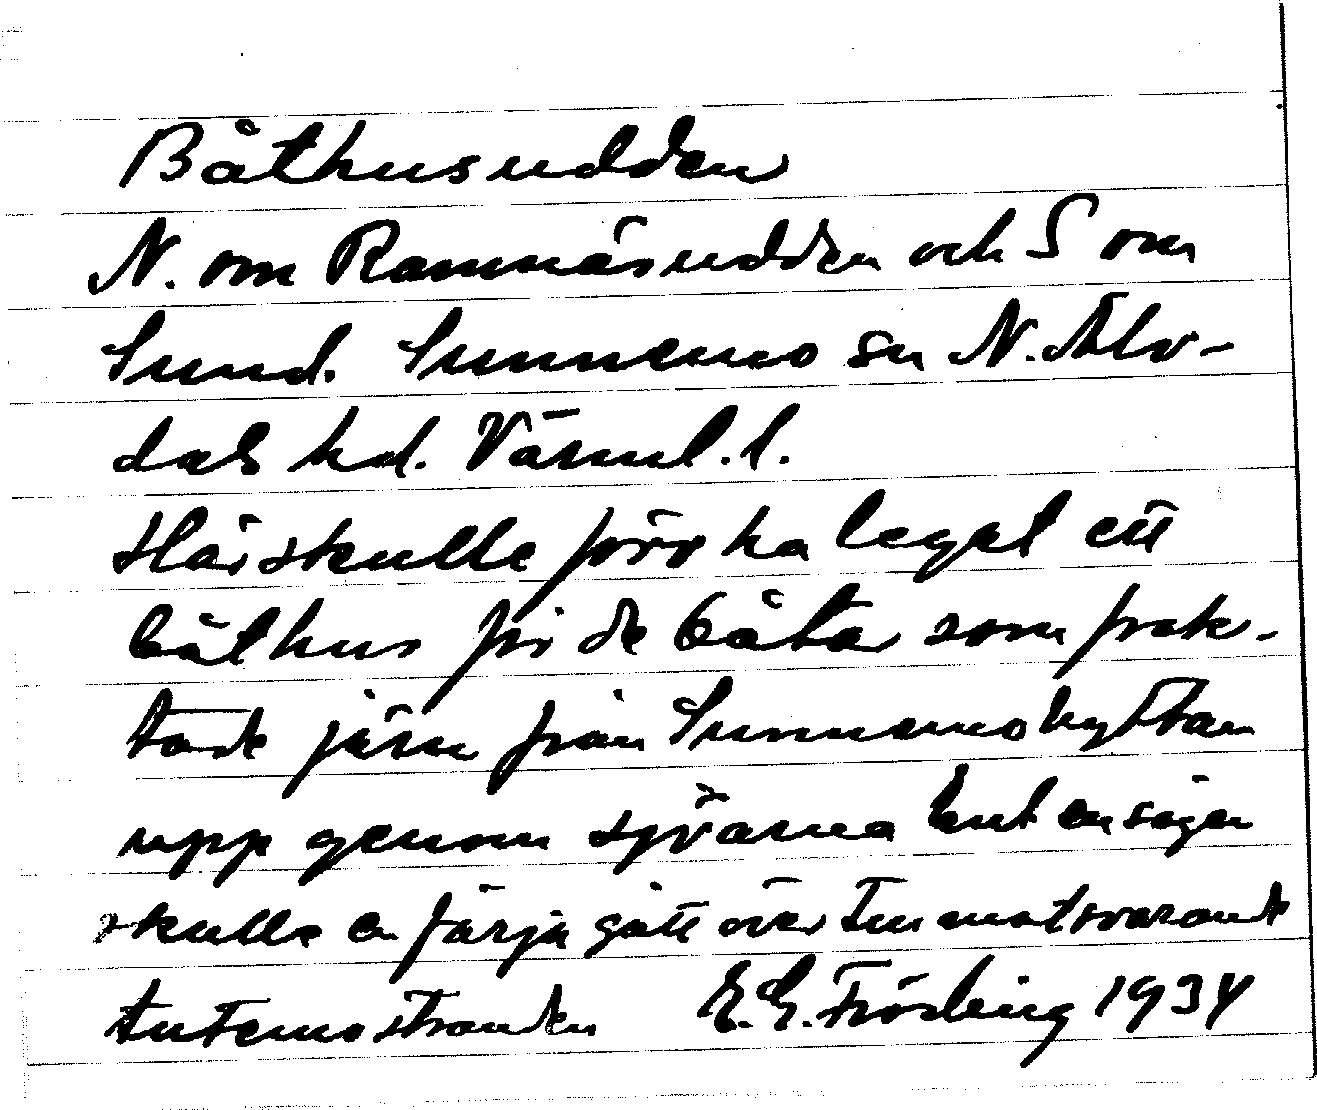 Båthusudden
N. om Ramnäsudden och S om
Sund. Sunnemo sn N. Älv-
dals hd. Värml. l.
Här skulle förr ha legat ett
båthus för de båtar som frak-
tade järn från Sunnemohyttan
upp genom sjöarna Enl en sägen
skulle en färja gått över till motsvarande
stranden E. G. Fröding 1934